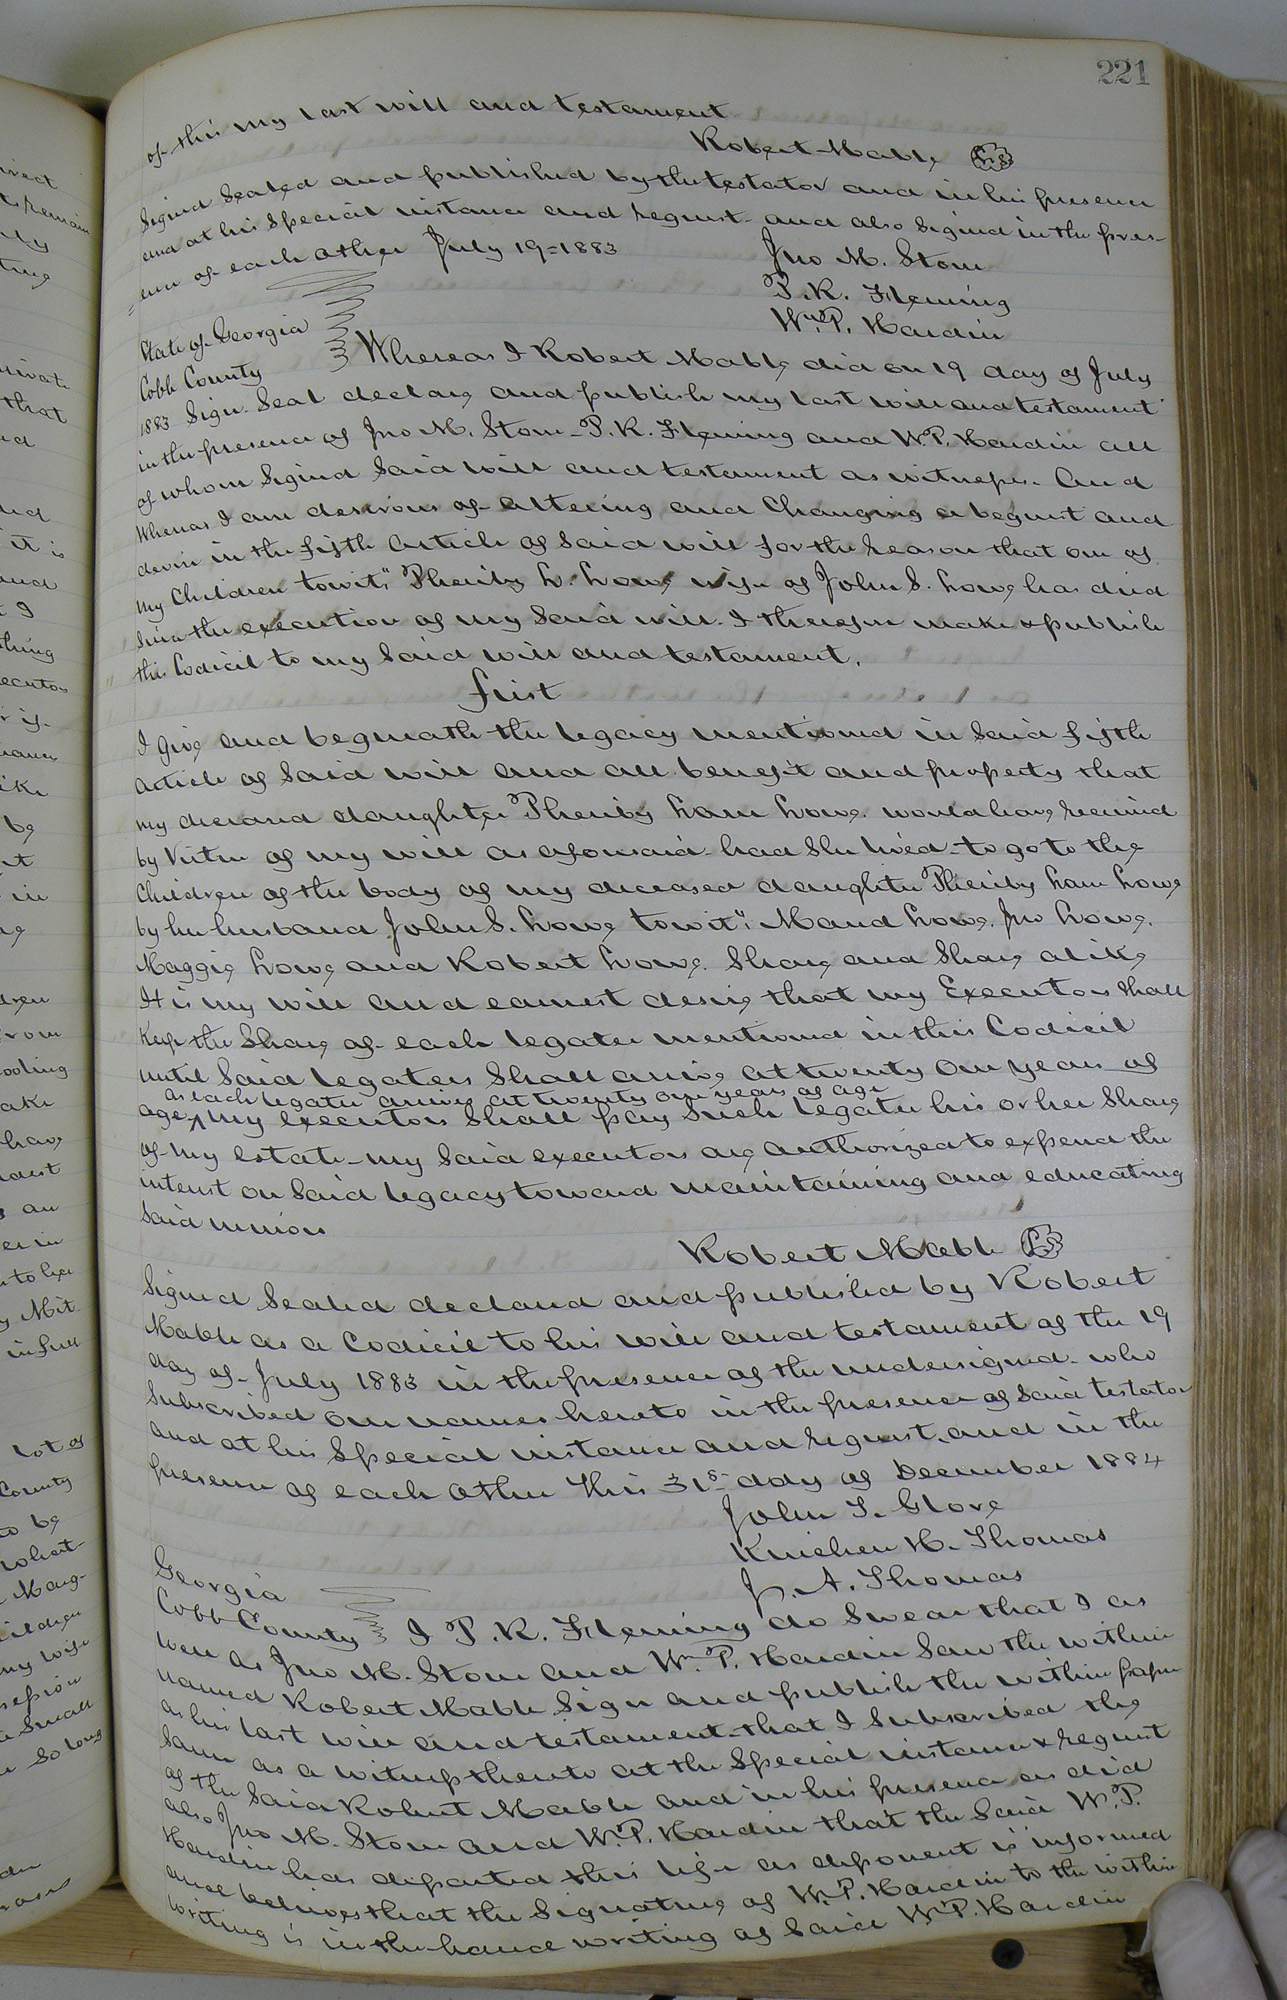 221
of this my last will and testament
Robert Mable LS
Signed Sealed and published by the testator and in his presence
and at his Special instance and request and also Signed in the pres-
=ence of each other July 19=1883
Jno M. Stone
P. R. Fleming
Wm P. Hardin
State of Georgia
Cobb County
Whereas I Robert Mable did on 19 day of July
1883 Sign. Seal declare and publish my last will and testament
in the presence of Jno M. Stone - P. R. Fleming and W.P. Hardin all
of whom Signed Said will and testament as witness. And
Whereas I am desirous of altering and Changing a bequest and
devise in the fifth Article of Said will for the reason that one of
my Children towit; Pheriby L. Lowe wife of John S. Lowe has died
Since the execution of my Said will. I therefore make & publish
this Codicil to my Said will and testament.
first
I give and bequeath the legacy mentioned in Said fifth
Article of Said will and all benefit and property that
my deceased daughter Pheriby Lowe. would have received
by Virtue of my will as aforesaid had She lived - to go to the
Children of the body of my deceased daughter Pheriby Lowe
by her husband John S. Lowe towit; Maud Lowe. Jno Lowe.
Maggie Lowe and Robert Lowe. Share and Share alike
It is my will and earnest desire that my Executors Shall
Keep the Share of each legatee mentioned in this Codicil
until Said legatees Shall arrive at twenty one years of
as each legatee arrives at twenty one years of age
age ^ my executors Shall pay Such legatee his or her Share
of my estate - my Said executors are authorized to expend the
interest on Said legacy toward maintaining and educating
Said minors
Robert Mable LS
Signed Sealed declared and published by Robert
Mable as a Codicil to his will and testament of the 19
day of July 1883 in the presence of the undersigned - who
Subscribed our names hereto in the presence of Said testator
and at his Special instance and request, and in the
presence of each other this 31st day of December 1884
John T. Glove
Kinchen H. Thomas
J. A. Thomas
Georgia
Cobb County
I P. R. Fleming do Swear that I as
well as Jno M. Stone and Wm P. Hardin Saw the within
named Robert Mable Sign and publish the within paper
as his last will and testament - that I Subscribed the
Same as a witness thereto at the Special instance & request
of the Said Robert Mable and in his presence as did
also Jno M. Stone and W.P. Hardin that the Said W.P.
Hardin has departed this life as deponent is informed
and believes that the Signature of W.P. Hardin to the within
writing is in the hand writing of Said W.P. Hardin